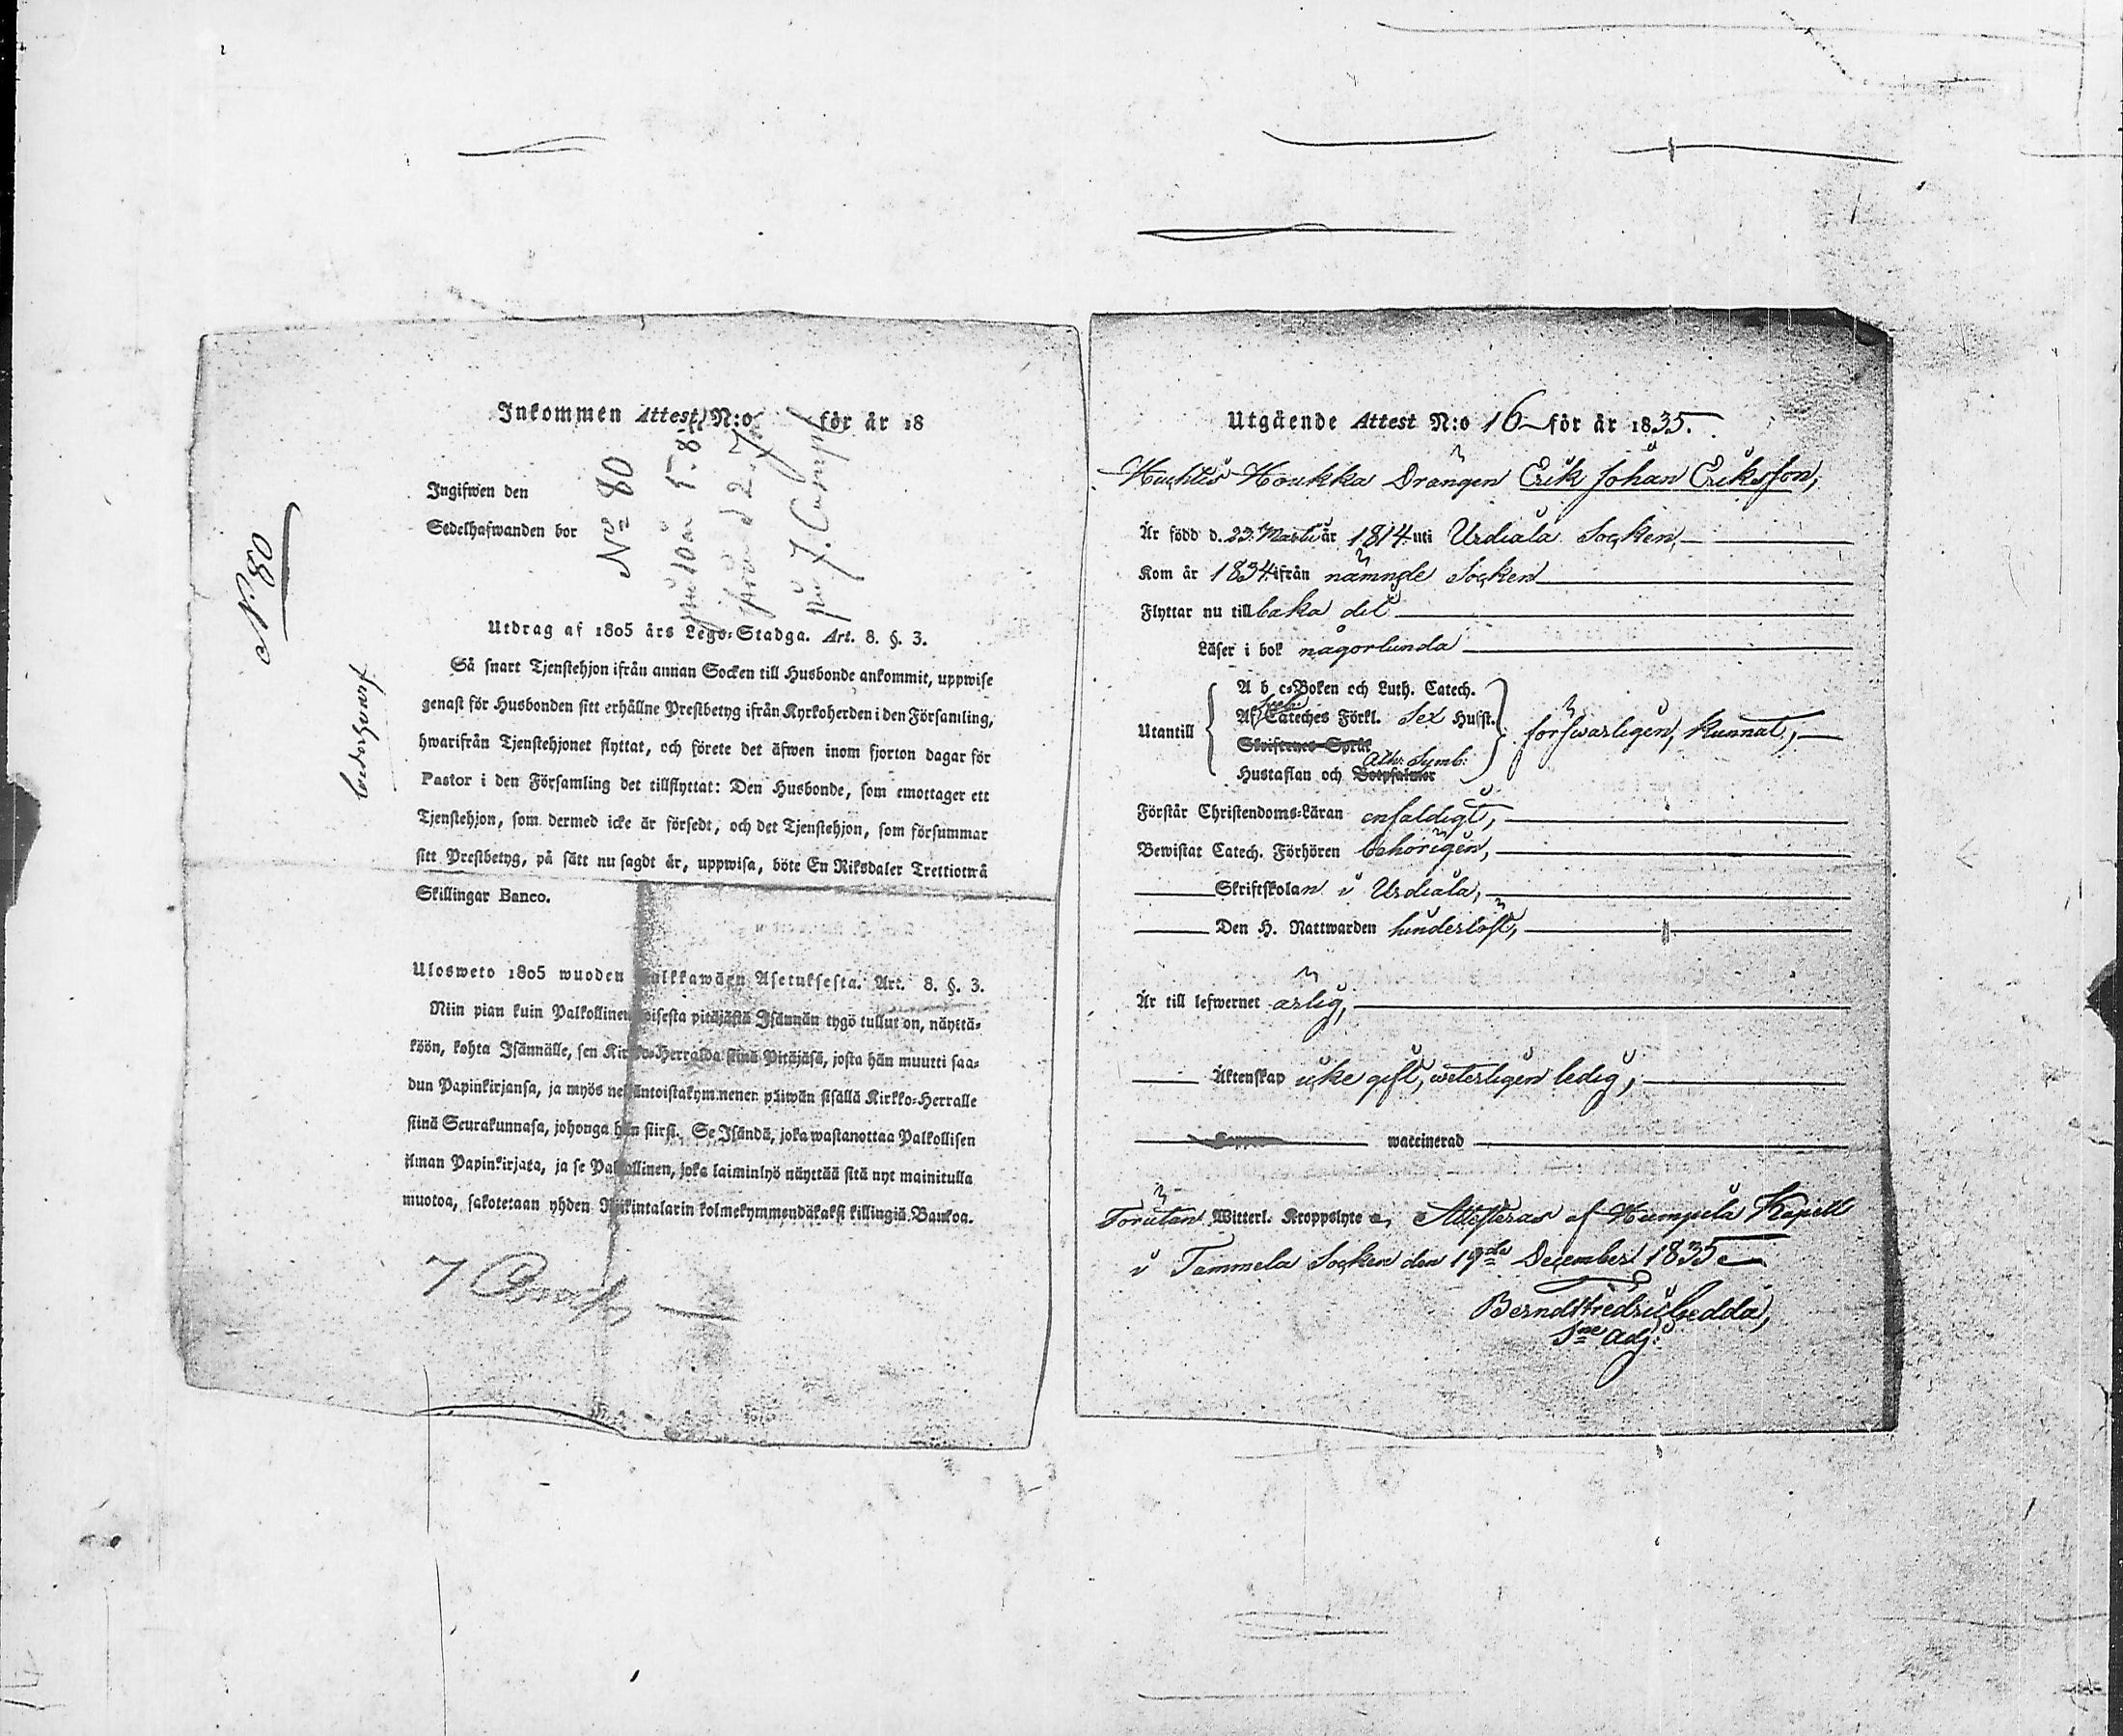 Inkommen Attest N:o för år 18
Ingifwen den
Sedelhafwanden bor
No 80
N 80
Utdrag af 1805 års Lego-Stadga. Art. 8. §. 3.
Så snart Tjenstehjon ifrån annan Socken till Husbonde ankommit, uppwise
genast för Husbonden sitt erhållne Prestbetyg ifrån Kyrkoherden i den Församling,
hwarifrån Tjenstehjonet flyttat, och förete det äfwen inom fjorton dagar för
Pastor i den Församling det tillflyttat: Den Husbonde, som emottager ett
Tjenstehjon, som dermed icke är försedt, och det Tjenstehjon, som försummar
sitt Prestbetyg, på sätt nu sagdt är, uppwisa, böte En Riksdaler Trettiotwå
Skillingar Banco.
Ulosweto 1805 wuoden Palkkawäen Asetuksesta. Art. 8. §. 3.
Niin pian kuin Palkollinen toisesta pitäjästä Isännän tygö tullut on, näyttä-
köön, kohta Isännälle, sen Kirkko-Herralda siinä Pitäjäsä, josta hän muutti saa-
dun Papinkirjansa, ja myös neljäntoistakymmenen päiwän sisällä Kirkko-Herralle
siinä Seurakunnasa, johonga hän siirsi. Se Isändä, joka wastanottaa Palkollisen
ilman Papinkirjata, ja se Palkollinen, joka laiminlyö näyttää sitä nyt mainitulla
muotoa, sakotetaan yhden Riikintalarin kolmekymmendäkaksi killingiä Bankoa.
Utgående Attest N:o 16 för år 1835.
Houkka Drängen Erik Johan Eriksson,
Är född d. 23. Martii år 1814 uti Urdiala Socken,
Kom år 1834 ifrån nämnde Socken
Flyttar nu tillbaka dit
Läser i bok någorlunda
A b c-Boken och Luth. Catech.
Utantill Af Sveb. Cateches Förkl. Sex Hufst. förswarligen kunnat,
Skriftenes Språk
Ath: Symb:
Hustaflan och Botpsalmer
Förstår Christendoms-Läran enfaldigt,
Bewistat Catech. Förhören behörigen,
Skriftskolan i Urdiala,
Den H. Nattwarden hinderlöst,
Är till lefwernet ärlig,
Äktenskap icke gift, weterligen ledig,
waccinerad
Förutan Witterl. Kroppslyte Attesteras af Humpila Kapell
i Tammela Socken den 19de December 1835
Berndt Fredric Gedda,
Sne Adj: